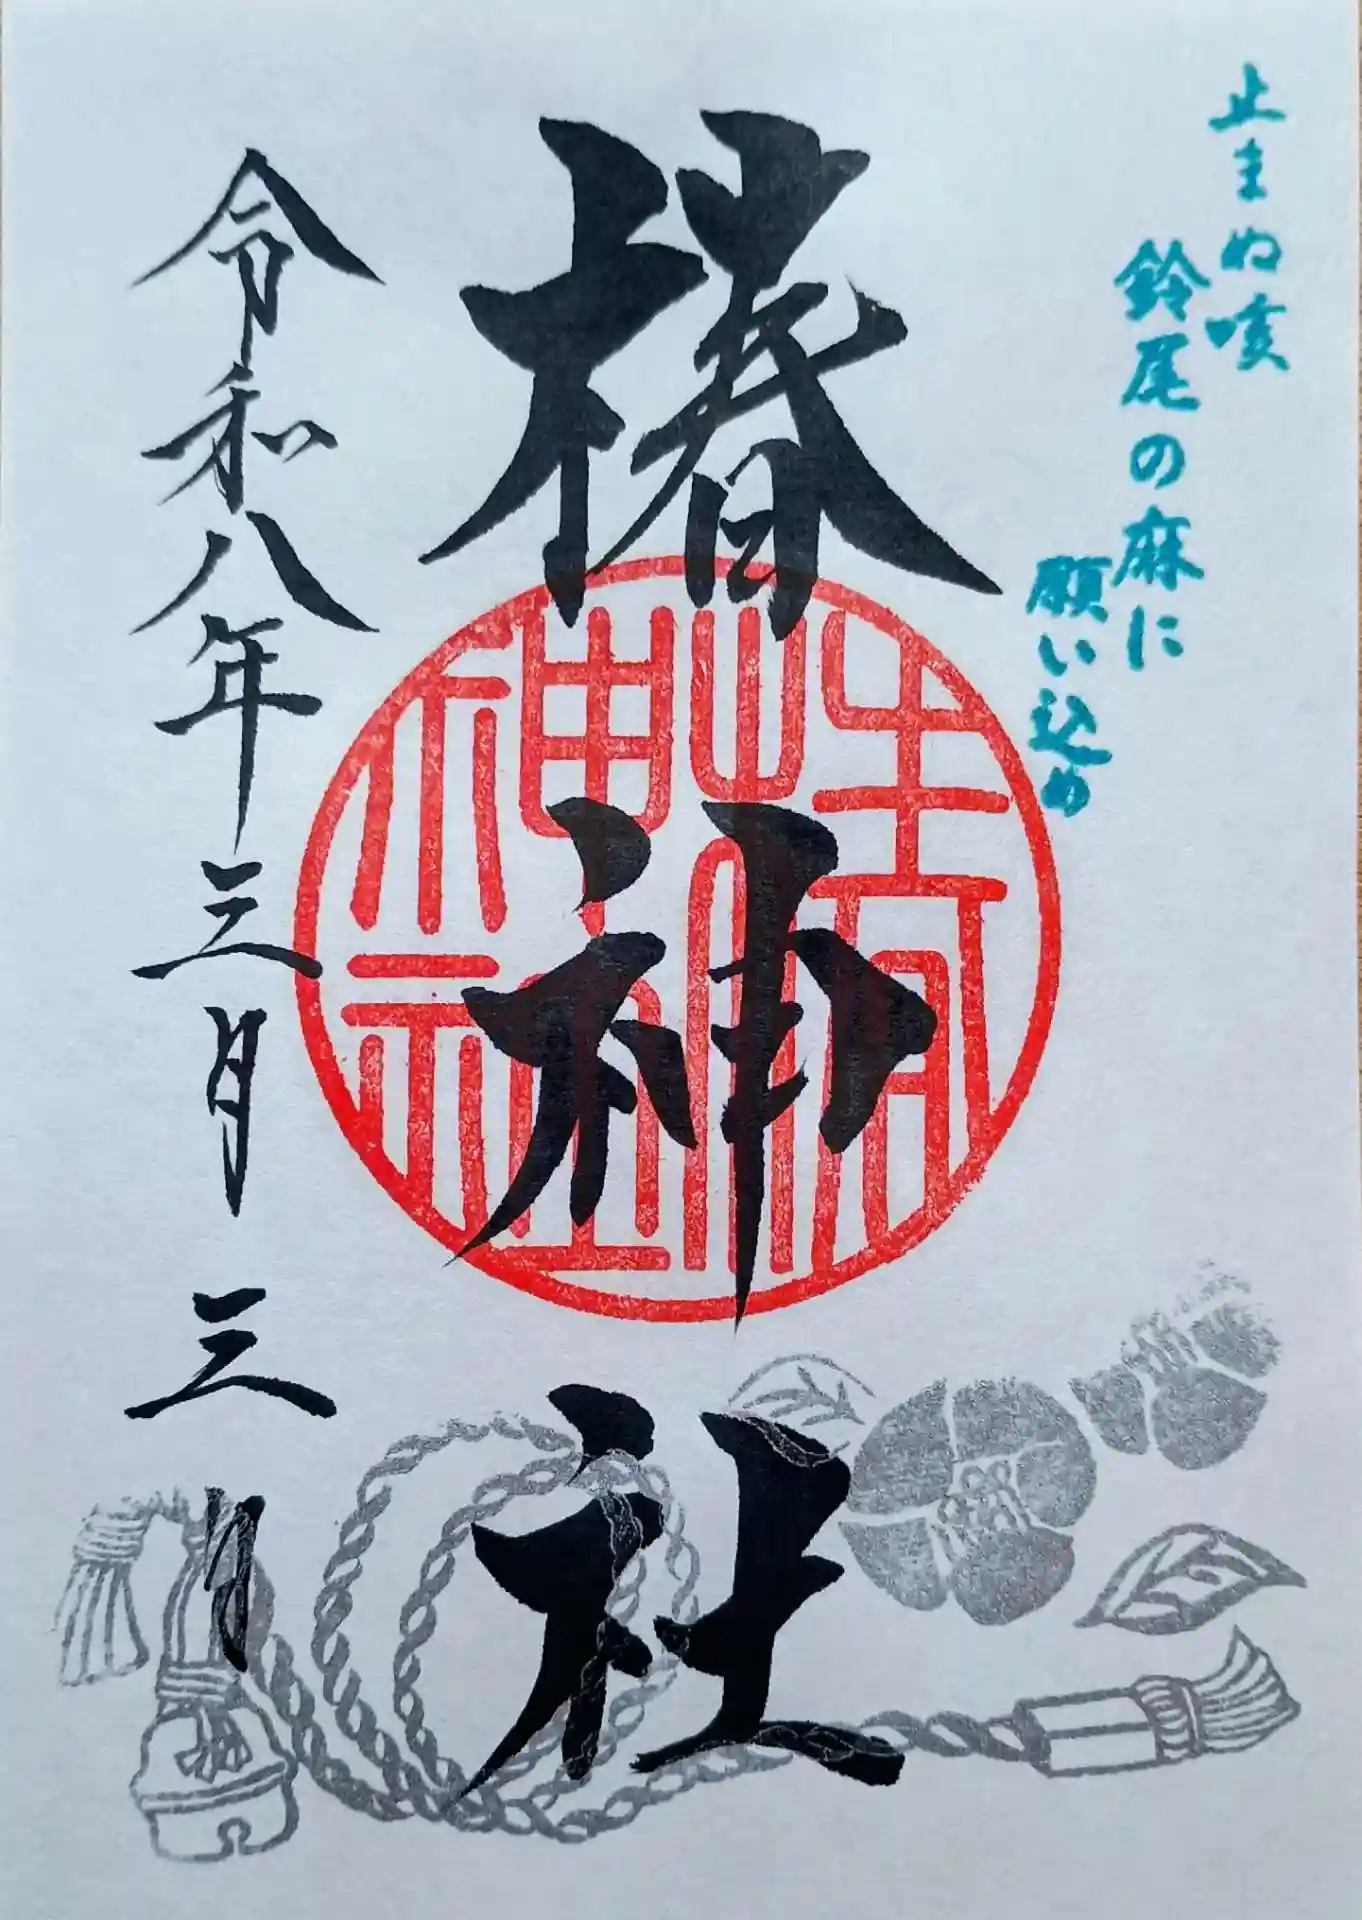 止まぬ咳
鈴尾の麻に
願い込め
椿神社
令和八年三月三日